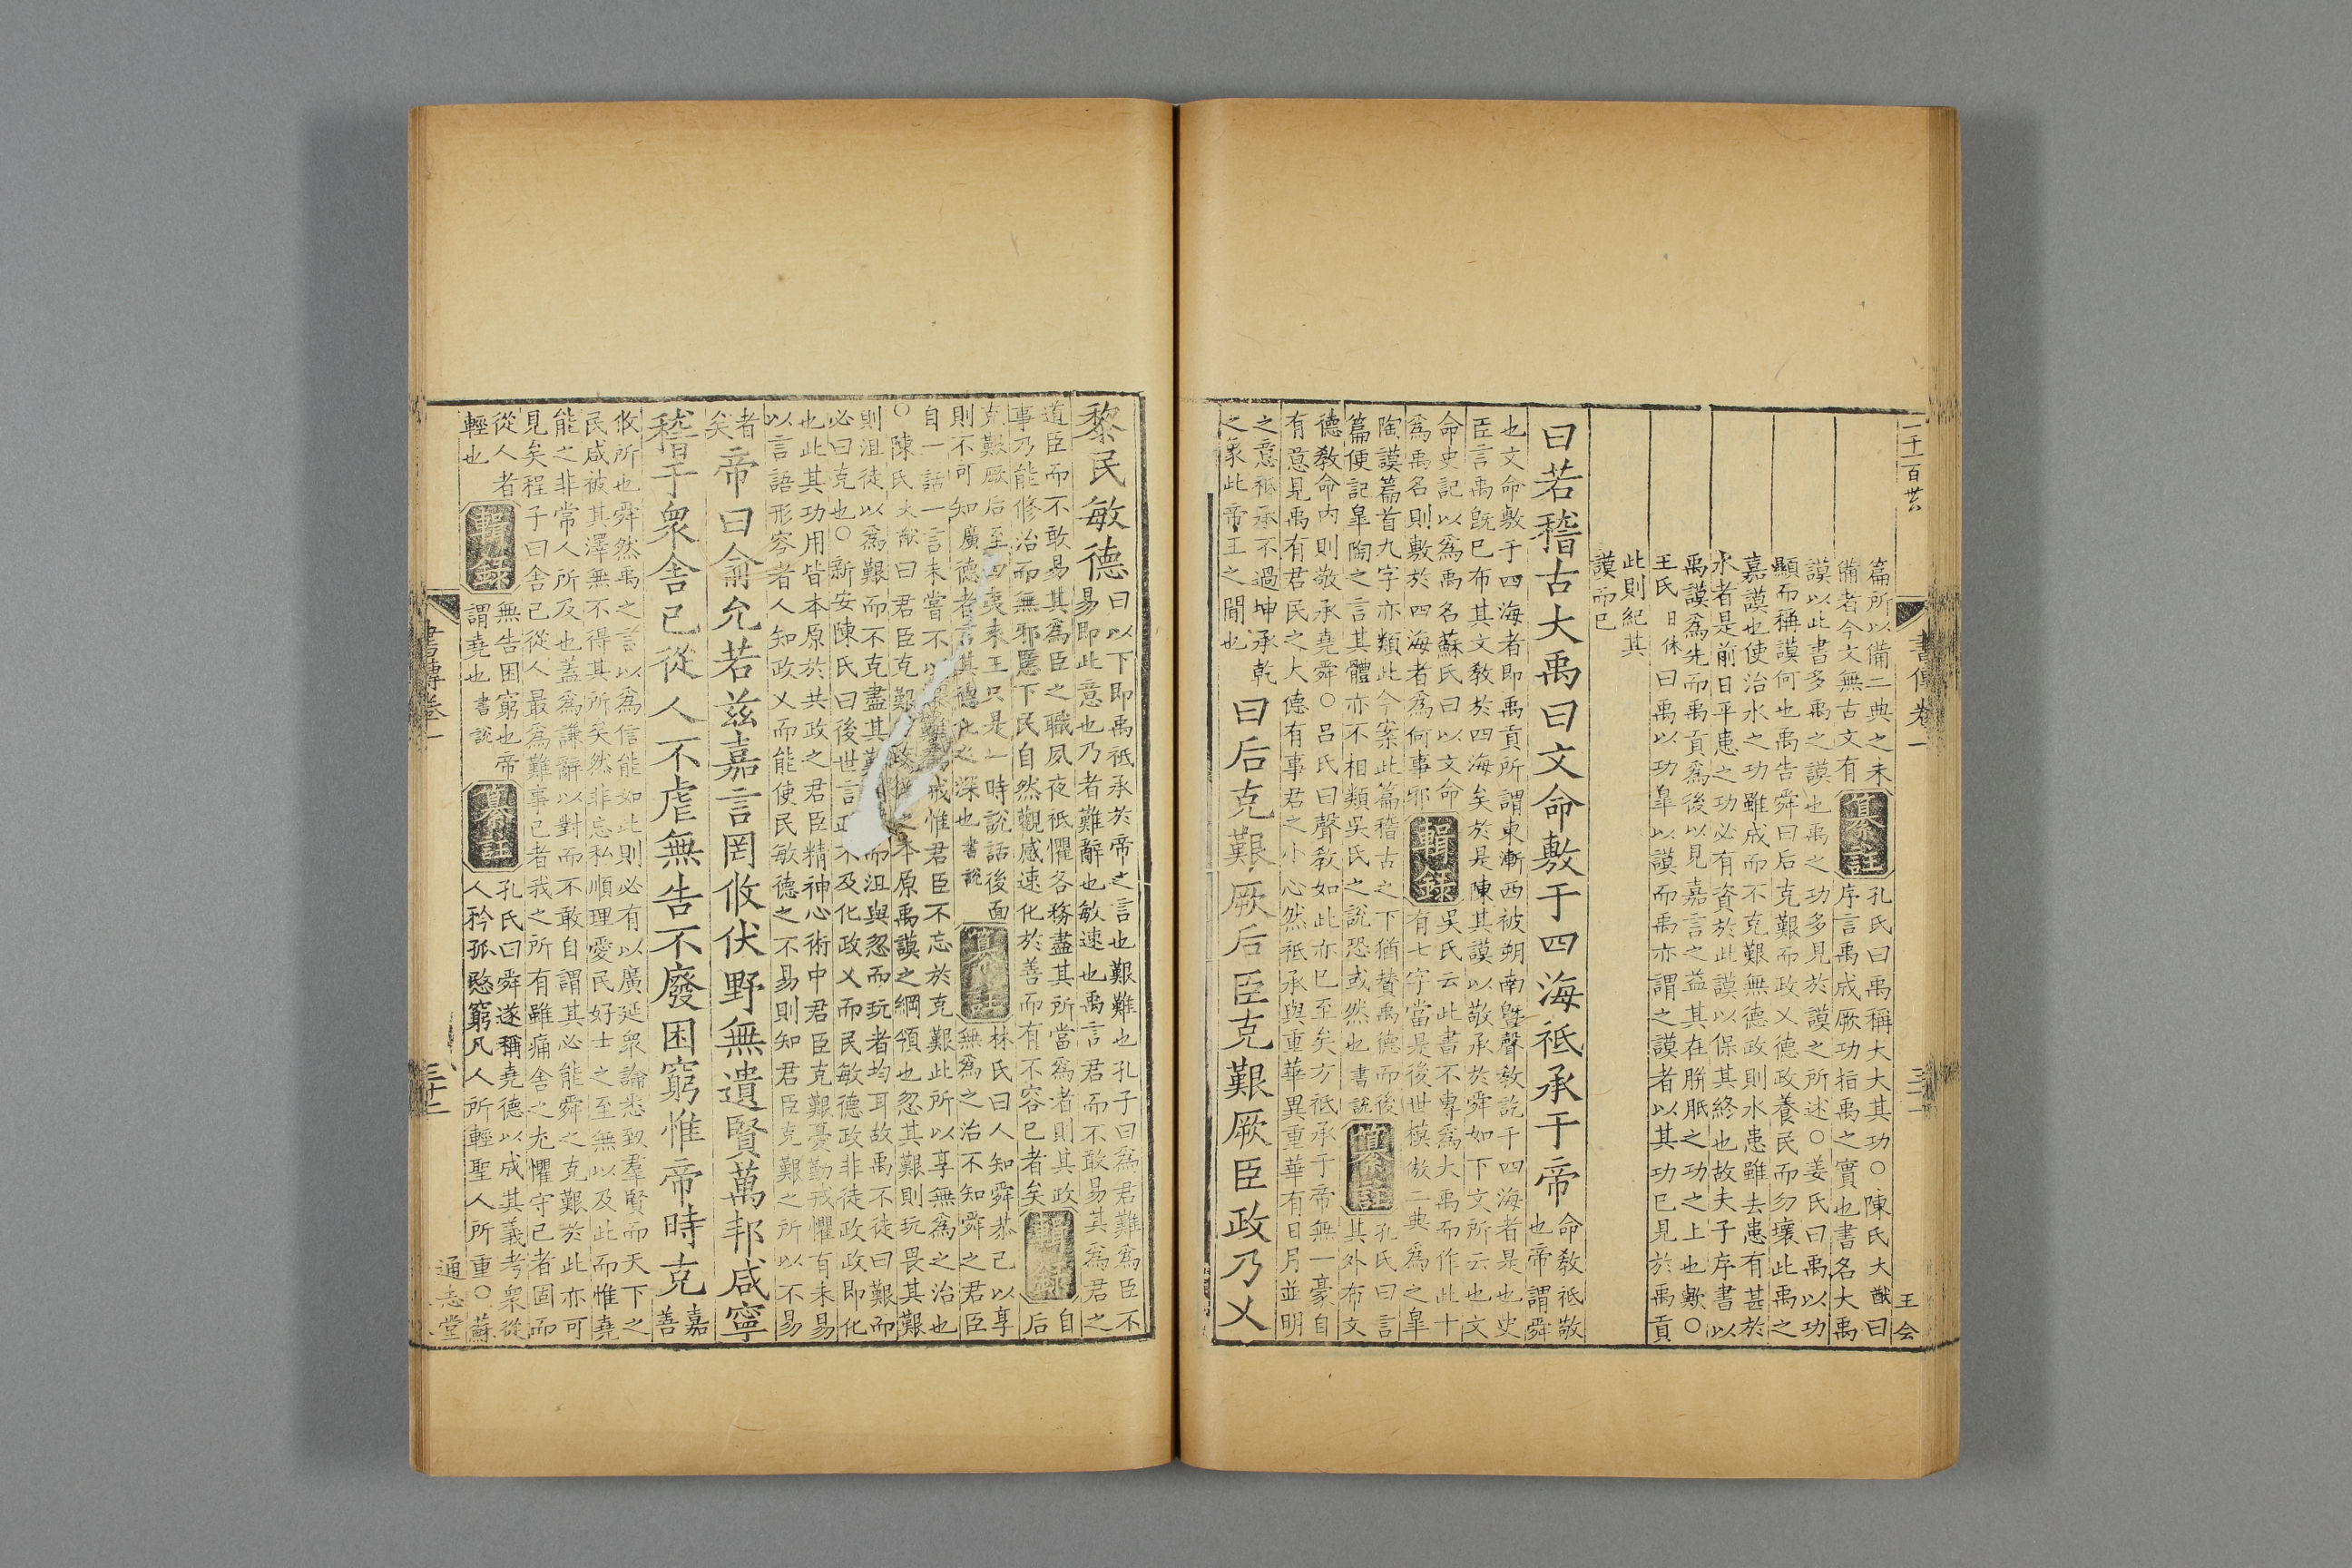 書傳卷一
三十一
王会
篇所以備二典之未 纂註 孔氏曰禹稱大大其功○陳氏大猷曰
備者今文無古文有 序言禹成厥功指禹之實也書名大禹
謨以此書多禹之謨也禹之功多見於謨之所述○姜氏曰禹以功
顯而稱謨何也禹告舜曰后克艱而政乂德政養民而勿壞此禹之
嘉謨也使治水之功雖成而不克艱無德政則水患雖去患有甚於
水者是前日平患之功必有資於此謨以保其終也故夫子序書以
禹謨爲先而禹貢爲後以見嘉言之益其在胼胝之功之上也歟○
王氏日休曰禹以功臯以謨而禹亦謂之謨者以其功已見於禹貢
此則紀其
謨而已
曰若稽古大禹曰文命敷于四海祗承于帝 命敎祗敬
也帝謂舜
也文命敷于四海者即禹貢所謂東漸西被朔南曁聲敎訖于四海者是也史
臣言禹旣已布其文敎於四海矣於是陳其謨以敬承於舜如下文所云也文
命史記以爲禹名蘇氏曰以文命 輯錄 吳氏云此書不專爲大禹而作此十
爲禹名則敷於四海者爲何事邪 有七字當是後世模倣二典爲之臯
陶謨篇首九字亦類此今案此篇稽古之下猶贊禹德而後 纂註 孔氏曰言
篇便記臯陶之言其體亦不相類吳氏之說恐或然也書說 其外布文
德敎命內則敬承堯舜○呂氏曰聲敎如此亦已至矣方祗承于帝無一毫自
有意見禹有君民之大德有事君之小心然祗承與重華異重華有日月並明
之意祗承不過坤承乾
之象此帝王之間也
曰后克艱厥后臣克艱厥臣政乃乂
黎民敏德 曰以下即禹祗承於帝之言也艱難也孔子曰爲君難爲臣不
易即此意也乃者難辭也敏速也禹言君而不敢易其爲君之
道臣而不敢易其爲臣之職夙夜祗懼各務盡其所當爲者則其政 輯錄 自
事乃能修治而無邪慝下民自然觀感速化於善而有不容已者矣 后
克艱厥后至四夷來王只是一時說話後面 纂註 林氏曰人知舜恭己以享
則不可知廣德者言其德化之深也書說 無爲之治不知舜之君臣
自一話一言未嘗不以艱難爲戒惟君臣不忘於克艱此所以享無爲之治也
○陳氏大猷曰君臣克艱政之本原禹謨之綱領也忽其艱則玩畏其艱
則沮徒以爲艱而不克盡其而沮與忽而玩者均耳故禹不徒曰艱而
必曰克也○新安陳氏曰後世言不及化政乂而民敏德政非徒政政即化
也此其功用皆本原於共政之君臣精神心術中君臣克艱憂勤戒懼有未易
以言語形容者人知政乂而能使民敏德之不易則知君臣克艱之所以不易
者
矣
帝曰兪允若茲嘉言罔攸伏野無遺賢萬邦咸寧
稽于衆舍己從人不虐無告不廢困窮惟帝時克 嘉
善
攸所也舜然禹之言以爲信能如此則必有以廣延衆論悉致羣賢而天下之
民咸被其澤無不得其所矣然非忘私順理愛民好士之至無以及此而惟堯
能之非常人所及也蓋爲謙辭以對而不敢自謂其必能舜之克艱於此亦可
見矣程子曰舍己從人最爲難事己者我之所有雖痛舍之尤懼守己者固而
從人者 輯錄 無告困窮也帝 纂註 孔氏曰舜遂稱堯德以成其義考衆從
輕也 謂堯也書說 人矜孤愍窮凡人所輕聖人所重○蘇
書傳卷一
三十二
通志堂